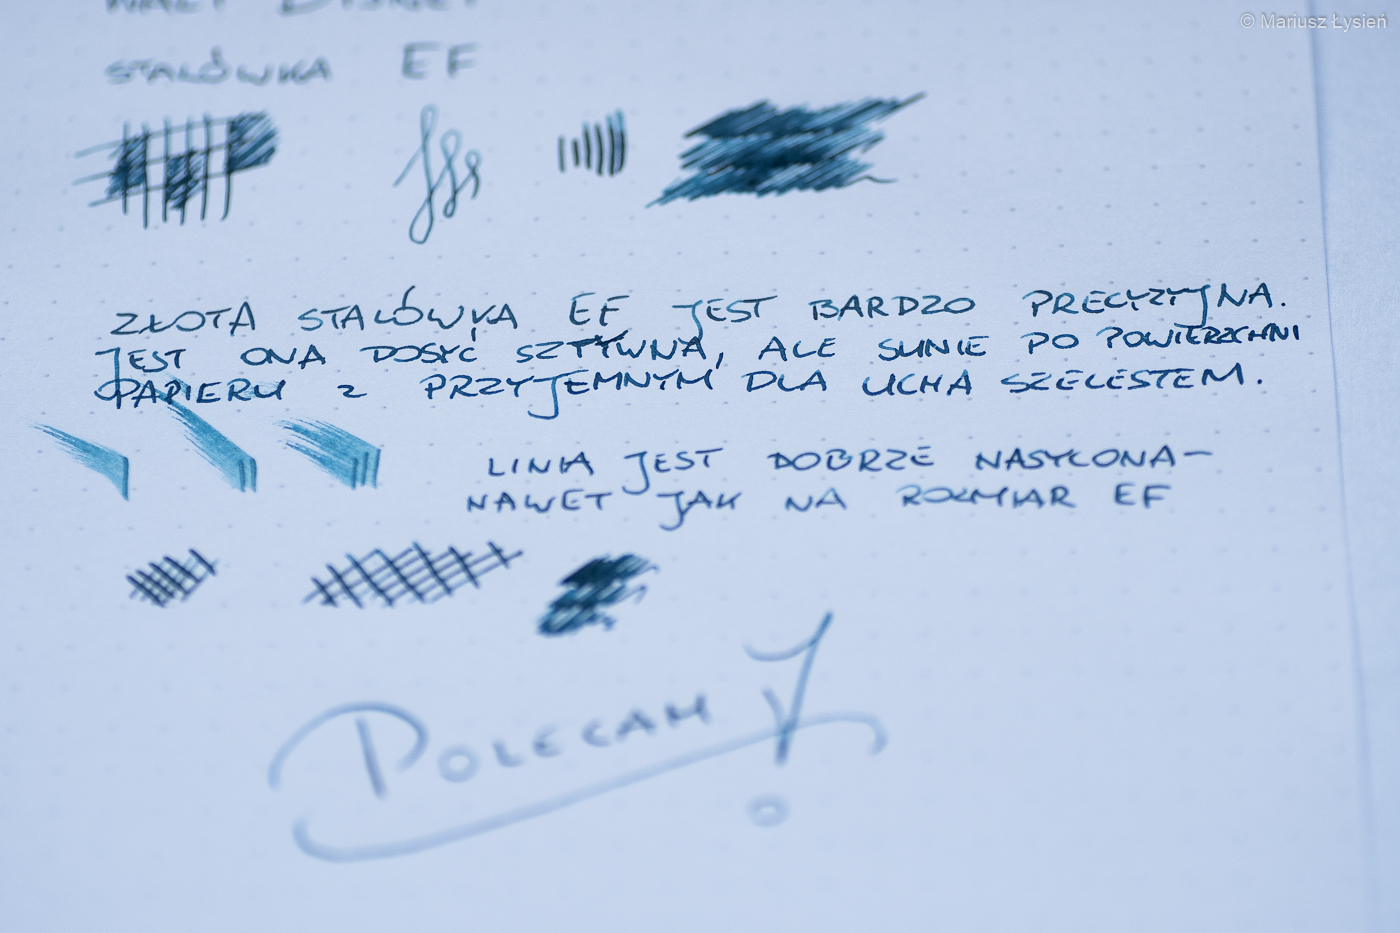 © Mariusz Łysień
WALT DISNEY
STALÓWKA EF
ZŁOTA STALÓWKA EF JEST BARDZO PRECYZYJNA.
JEST ONA DOSYĆ SZTYWNA, ALE SUNIE PO POWIERZCHNI
PAPIERU Z PRZYJEMNYM DLA UCHA SZELESTEM.
LINIA JEST DOBRZE NASYCONA –
NAWET JAK NA ROZMIAR EF
POLECAM!